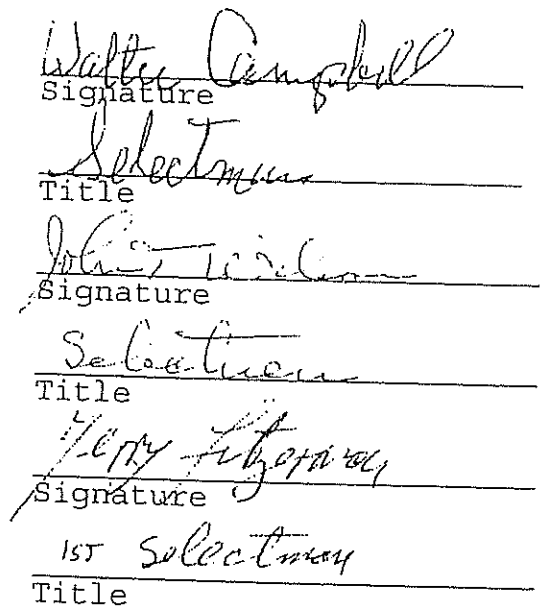 Walter Campbell
Signature
Selectman
Title
John
Signature
Selectman
Title
Signature
1st Selectman
Title